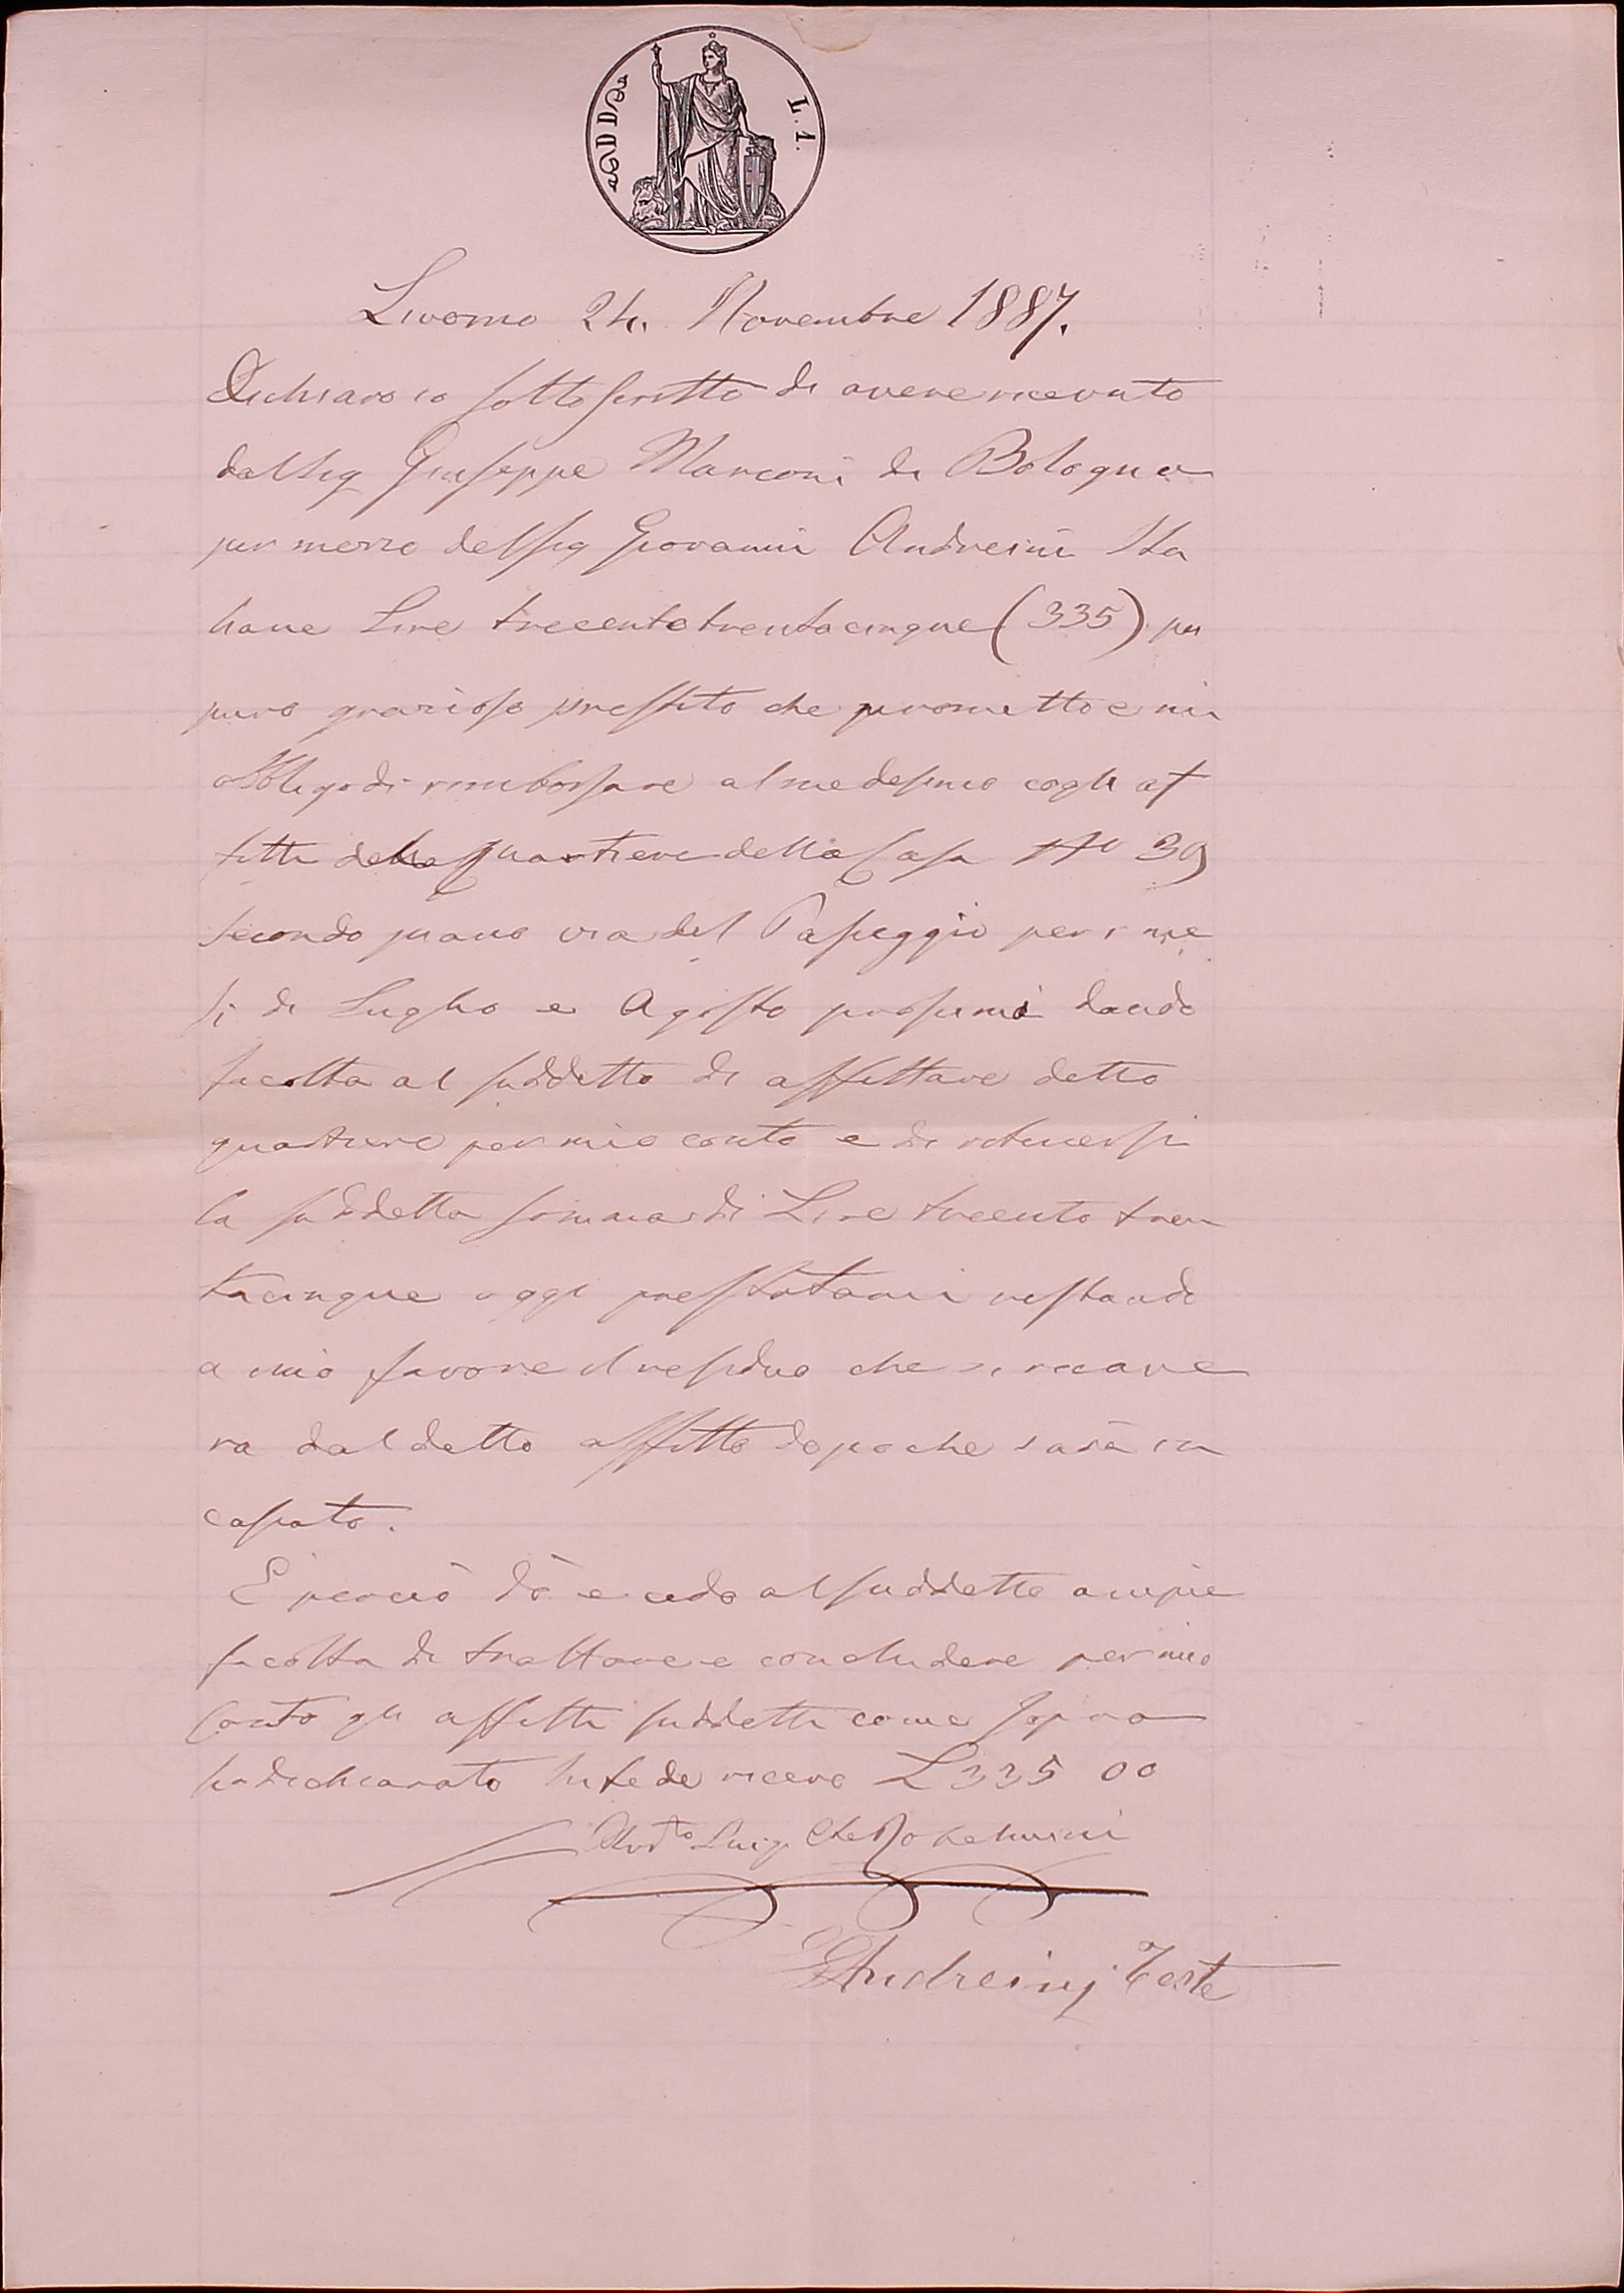 DD
L. 1.
Livorno 24. Novembre 1887.
Dichiaro io sottoscritto di avere ricevuto
dal Sig Giuseppe Marconi di Bologna
per mezzo del Sig Giovanni Andreini Ita
liane Lire trecentotrentacinque (335) per
puro grazioso prestito che prometto e mi
obbligo di rimborsare al medesimo cogli af
fitti del quartiere della Casa No 39
secondo piano via del Passeggio per i me
si di Luglio e Agosto prossimi dando
facolta al suddetto di affittare detto
quartiere per mio conto e di ritenersi
la suddetta somma di Lire trecento tren
tacinque oggi prestatami restando
a mio favore il residuo che si ricave
ra dal detto affitto dopo che sarà in
cassato.
E perciò dò e cedo al suddetto ampie
facolta di trattare e concludere per mio
Conto gli affitti suddetti come sopra
ho dichiarato In fede ricevo L 335 00
Luigi
G Andreini Teste